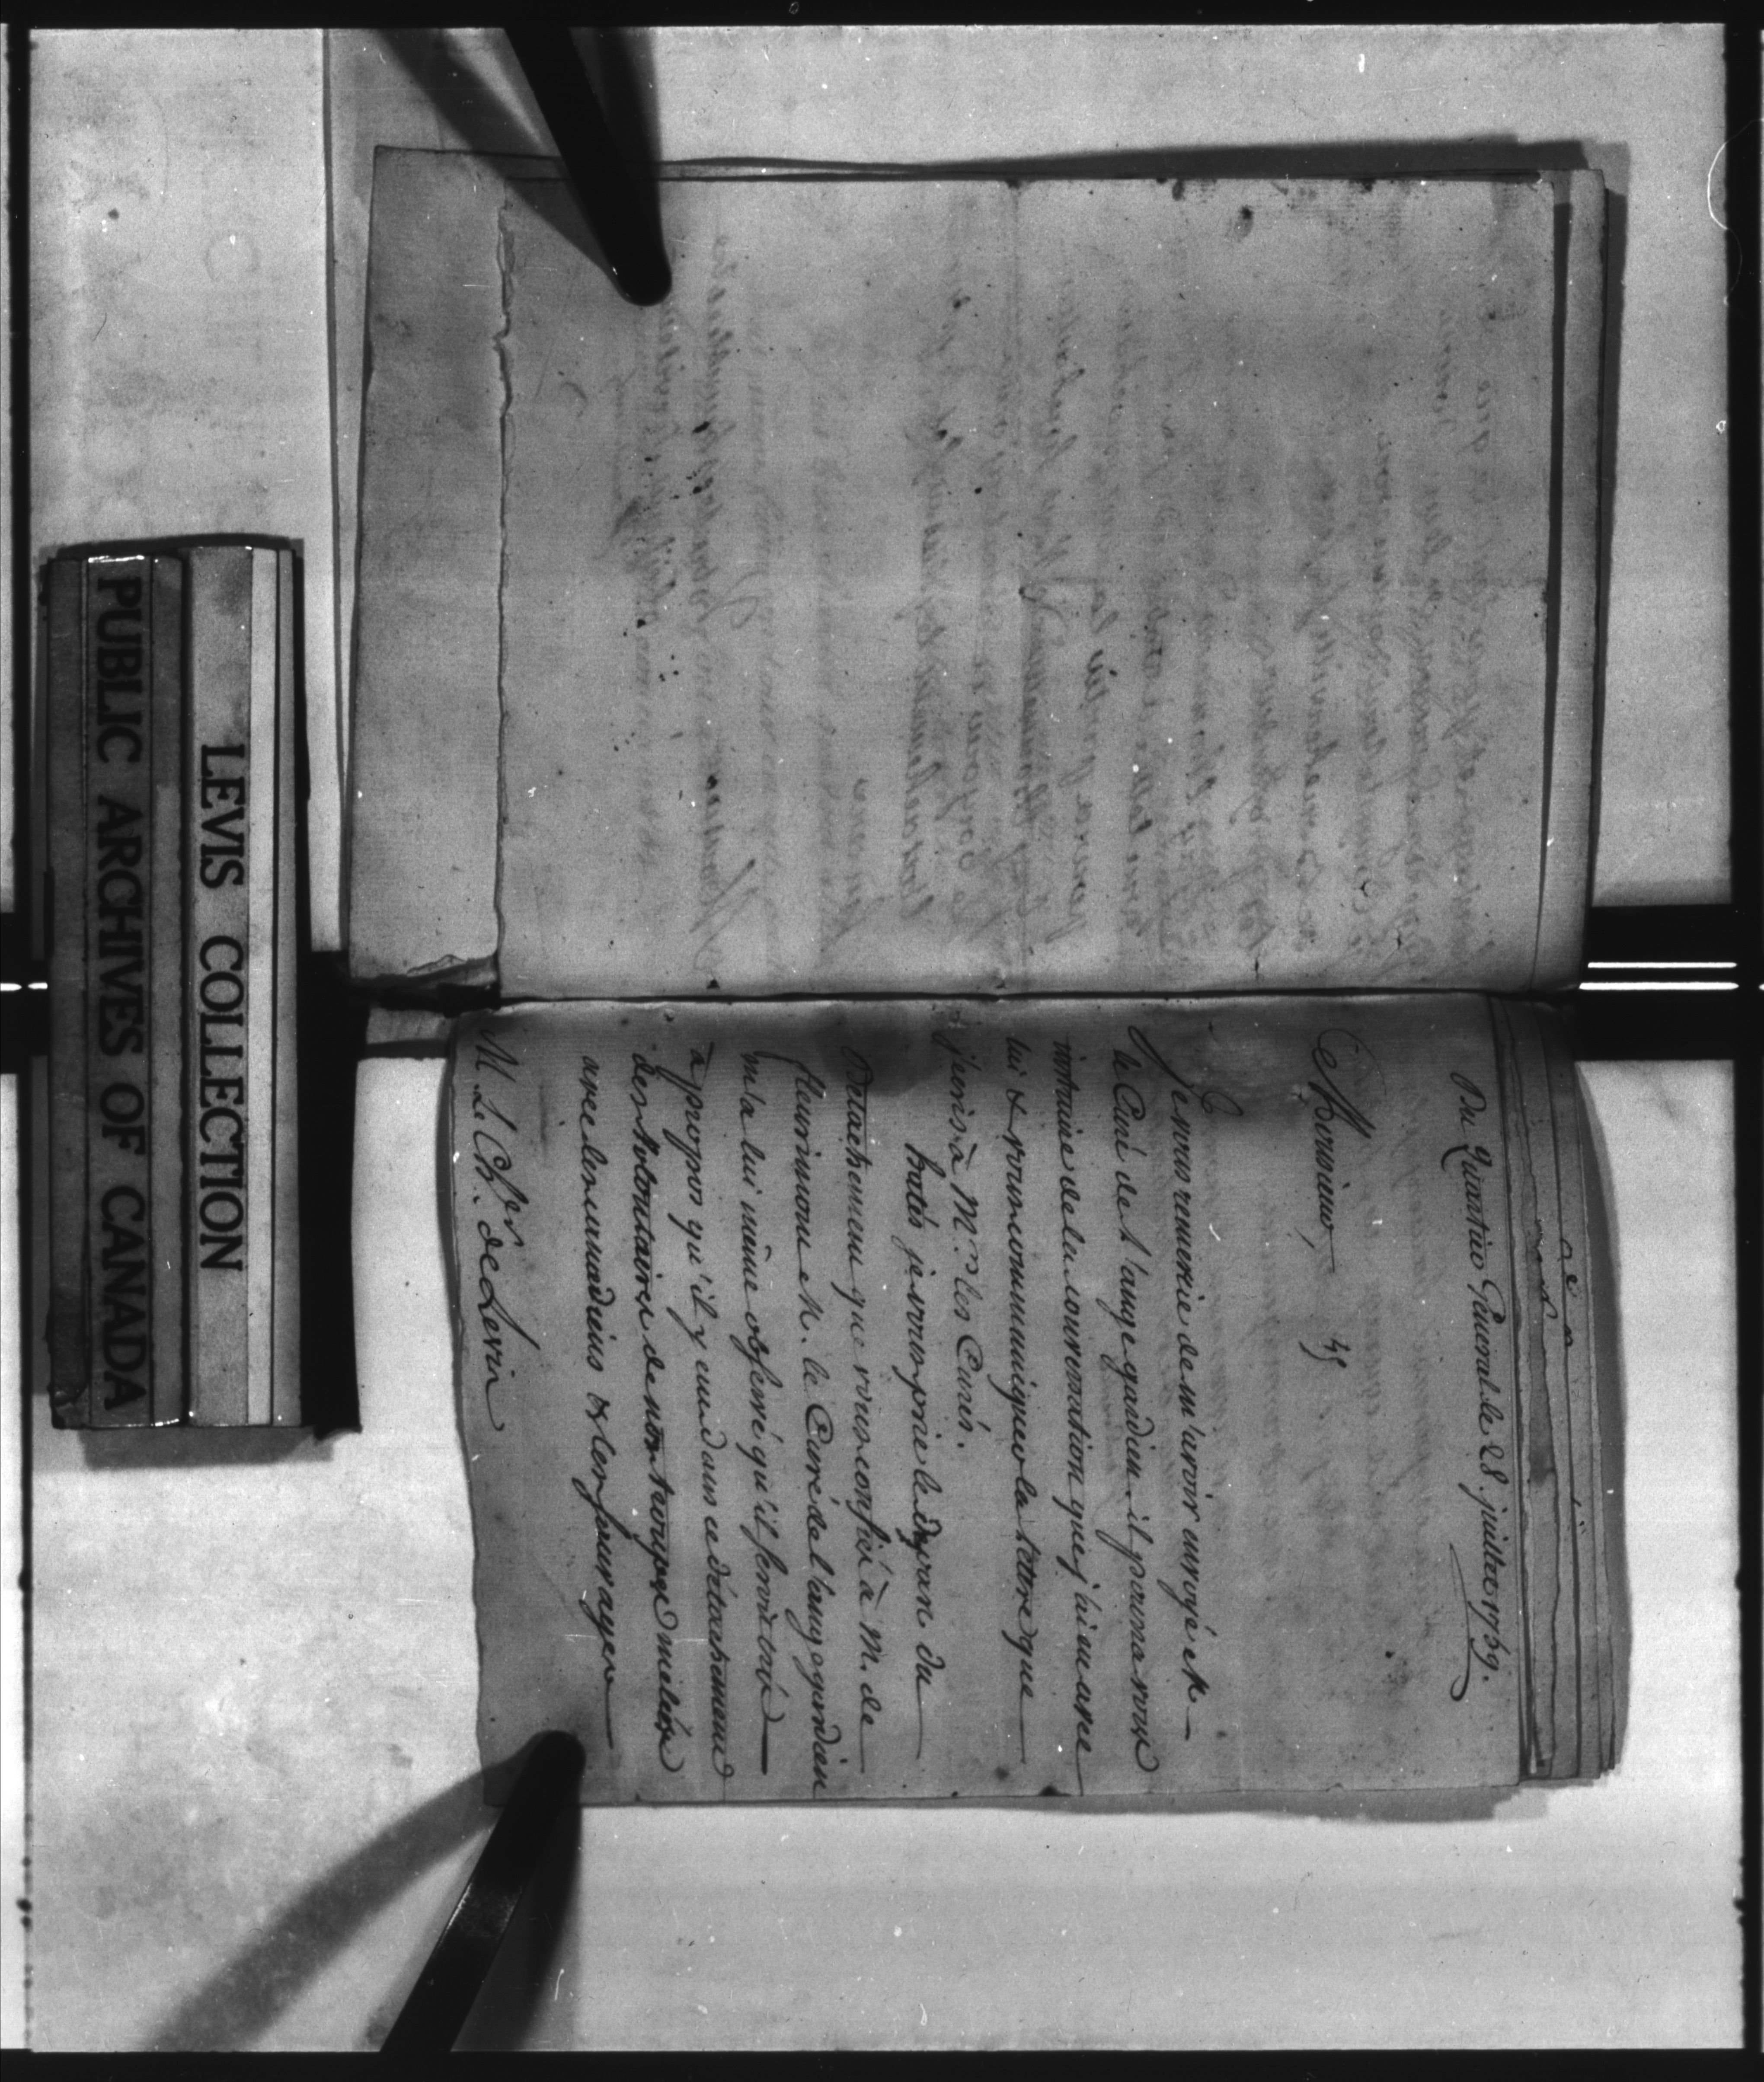 Du Quartier General le 28. juillet 1759.
Monsieur,
49
Je vous remercie de m'avoir envoyé M.
le Curé de L'ange gardien. il pourra vous
instruire de la conversation que j'ai eu avec
lui & vous communiquer la lettre que
j'ecris à Mrs. les Curés.
hatés je vous prie le depart du
Detachement que vous confiés à M. de
fleurimont. M. le Curé de l'ange gardien
m'a lui même observé qu'il seroit très
à propos qu'il y eut dans ce détachement
des volontaires de nos troupes mêlés
avec les canadiens & les sauvages
M. Le Cher. de Levis
LEVIS COLLECTION
PUBLIC ARCHIVES OF CANADA